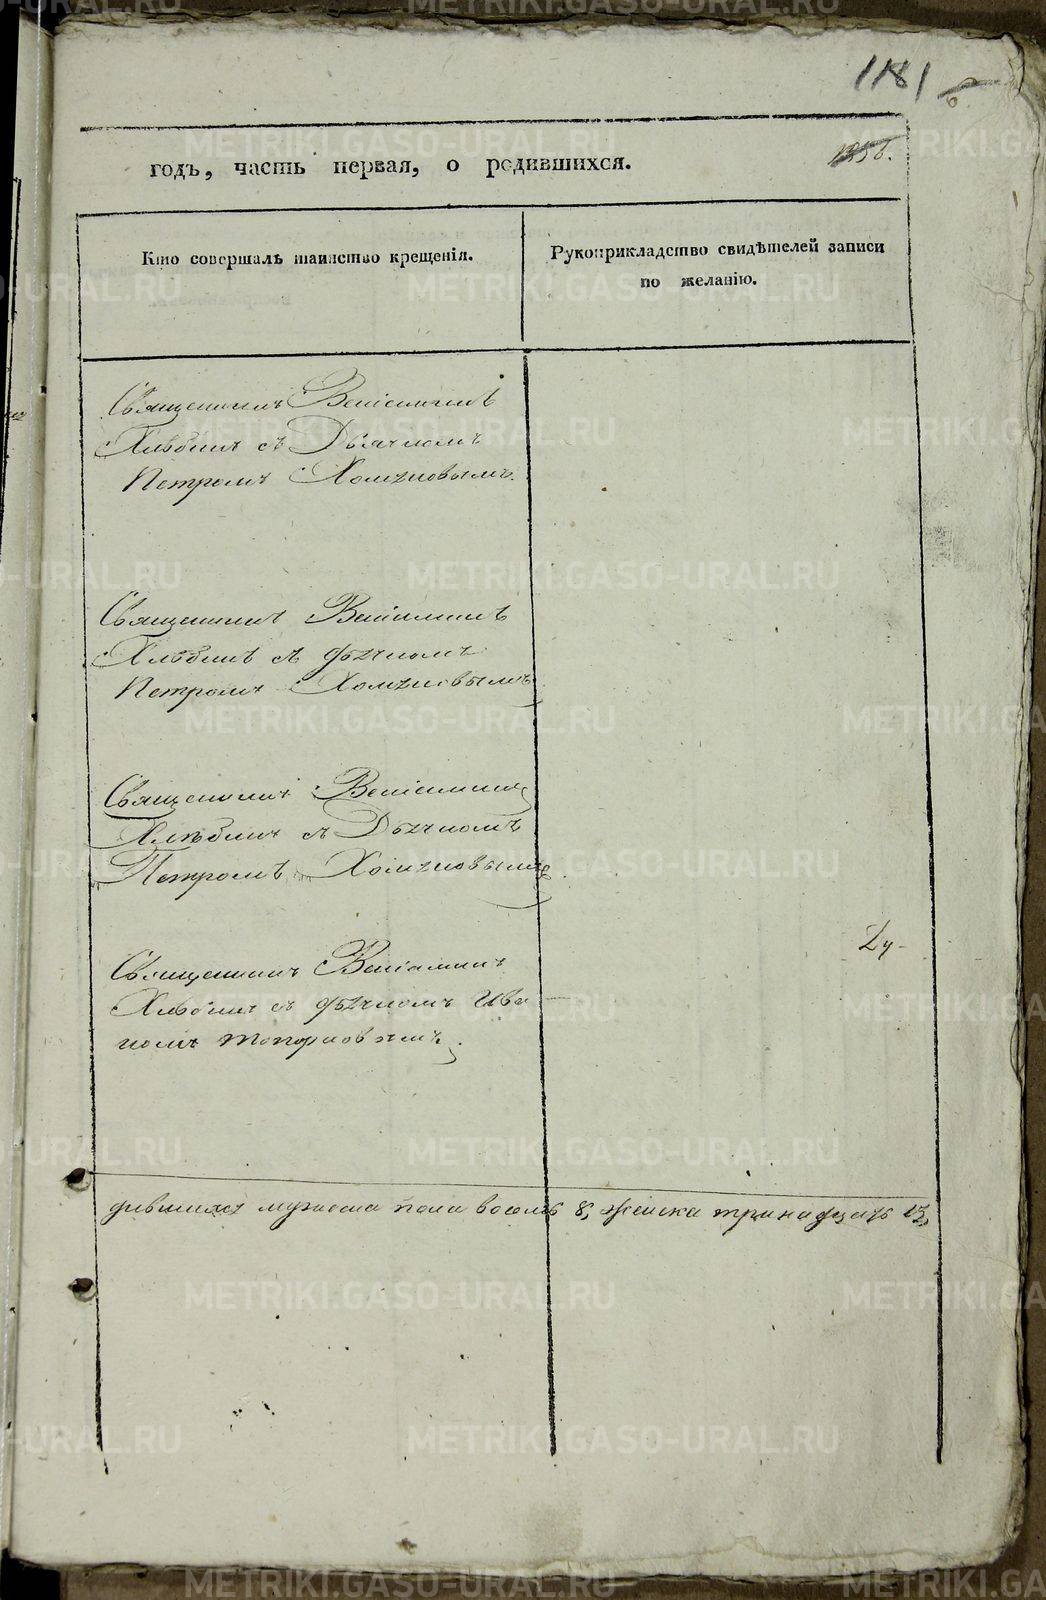 1181
годъ, часть первая, о родившихся.
Кто совершалъ таинство крещенія.
Рукоприкладство свидѣтелей записи
по желанію.
Священникъ Веніаминъ
Хлѣбинъ съ Дьячкомъ
Петромъ Хомяковымъ.
Священникъ Веніаминъ
Хлѣбинъ съ дьячкомъ
Петромъ Хомяковымъ
Священникъ Веніаминъ
Хлѣбинъ съ Дьячкомъ
Петромъ Хомяковымъ
Священникъ Веніаминъ
Хлѣбинъ съ дьячкомъ Ива
номъ Топорковымъ.
дившихся мужеска пола восемь 8, женска тринадцать 13,
METRIKI.GASO-URAL.RU